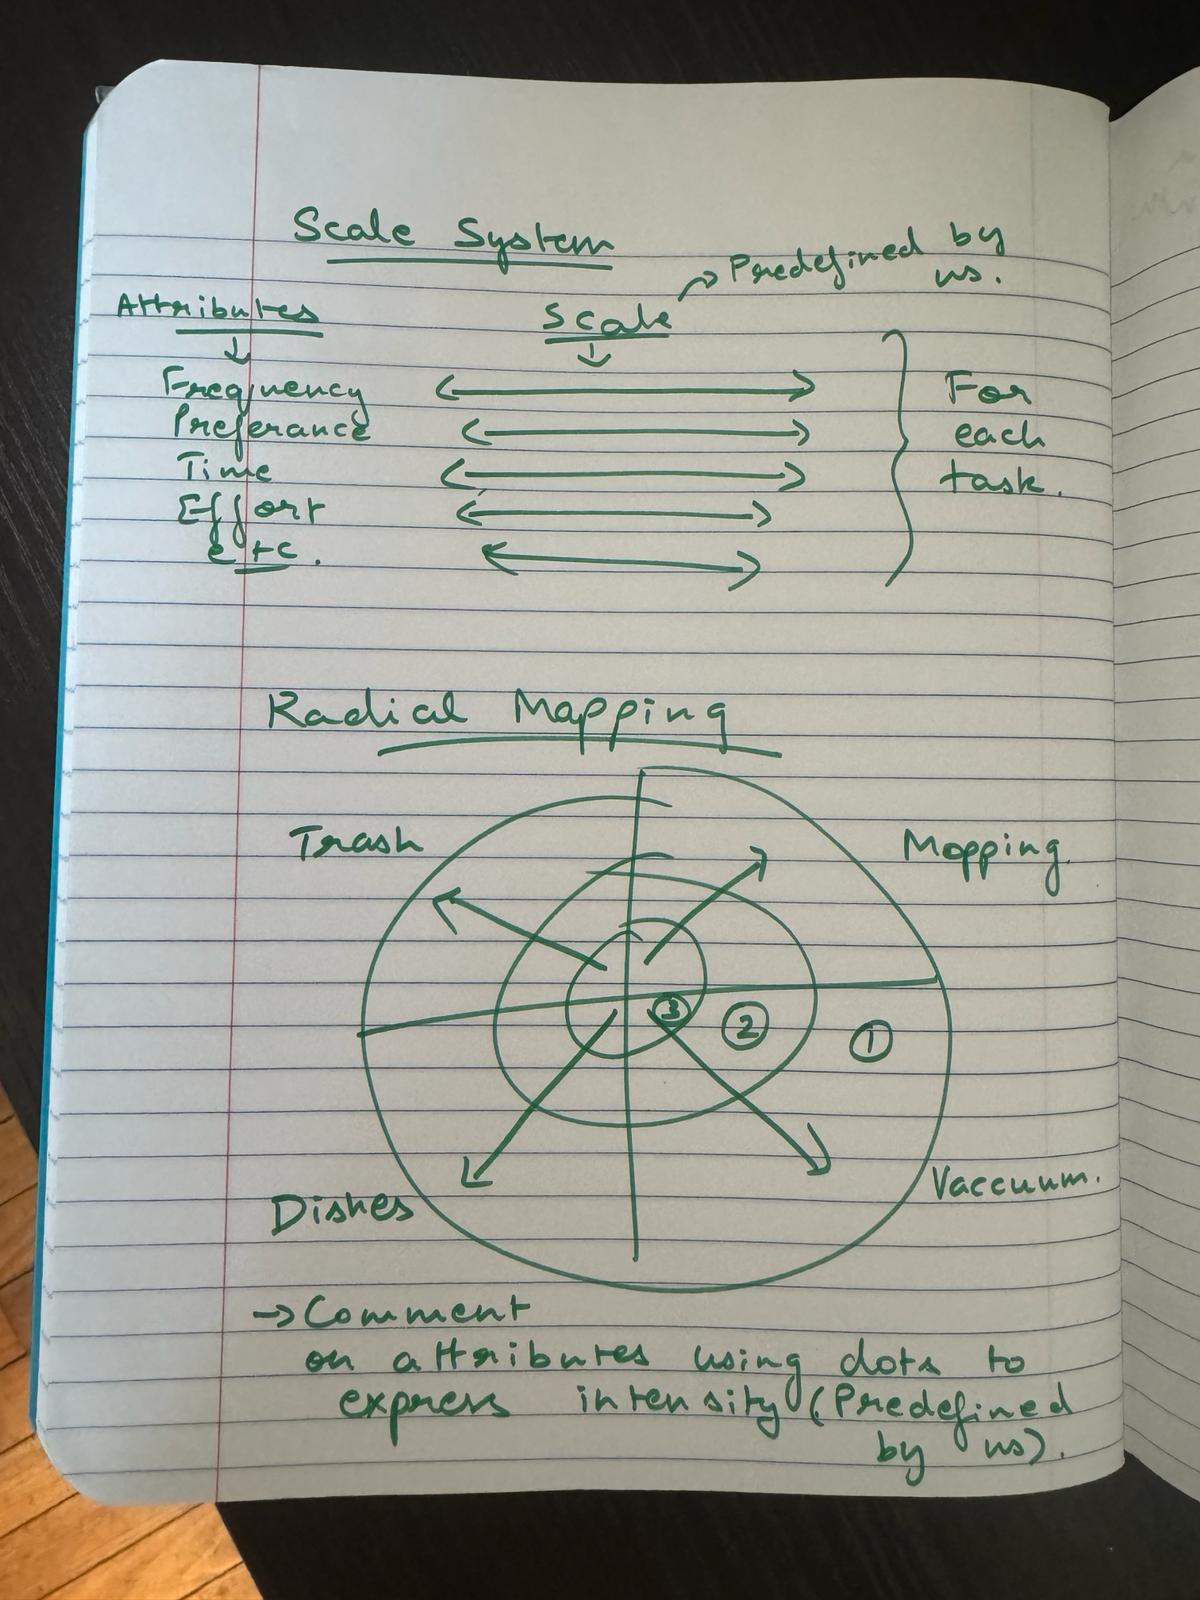 Scale System
Predefined by
us.
Attributes
Scale
Frequency
Preferance
Time
Effort
etc.
For
each
task.
Radial Mapping
Trash
Mopping.
3
2
1
Dishes
Vaccuum.
→ Comment
on attributes using dots to
express intensity (Predefined
by us).